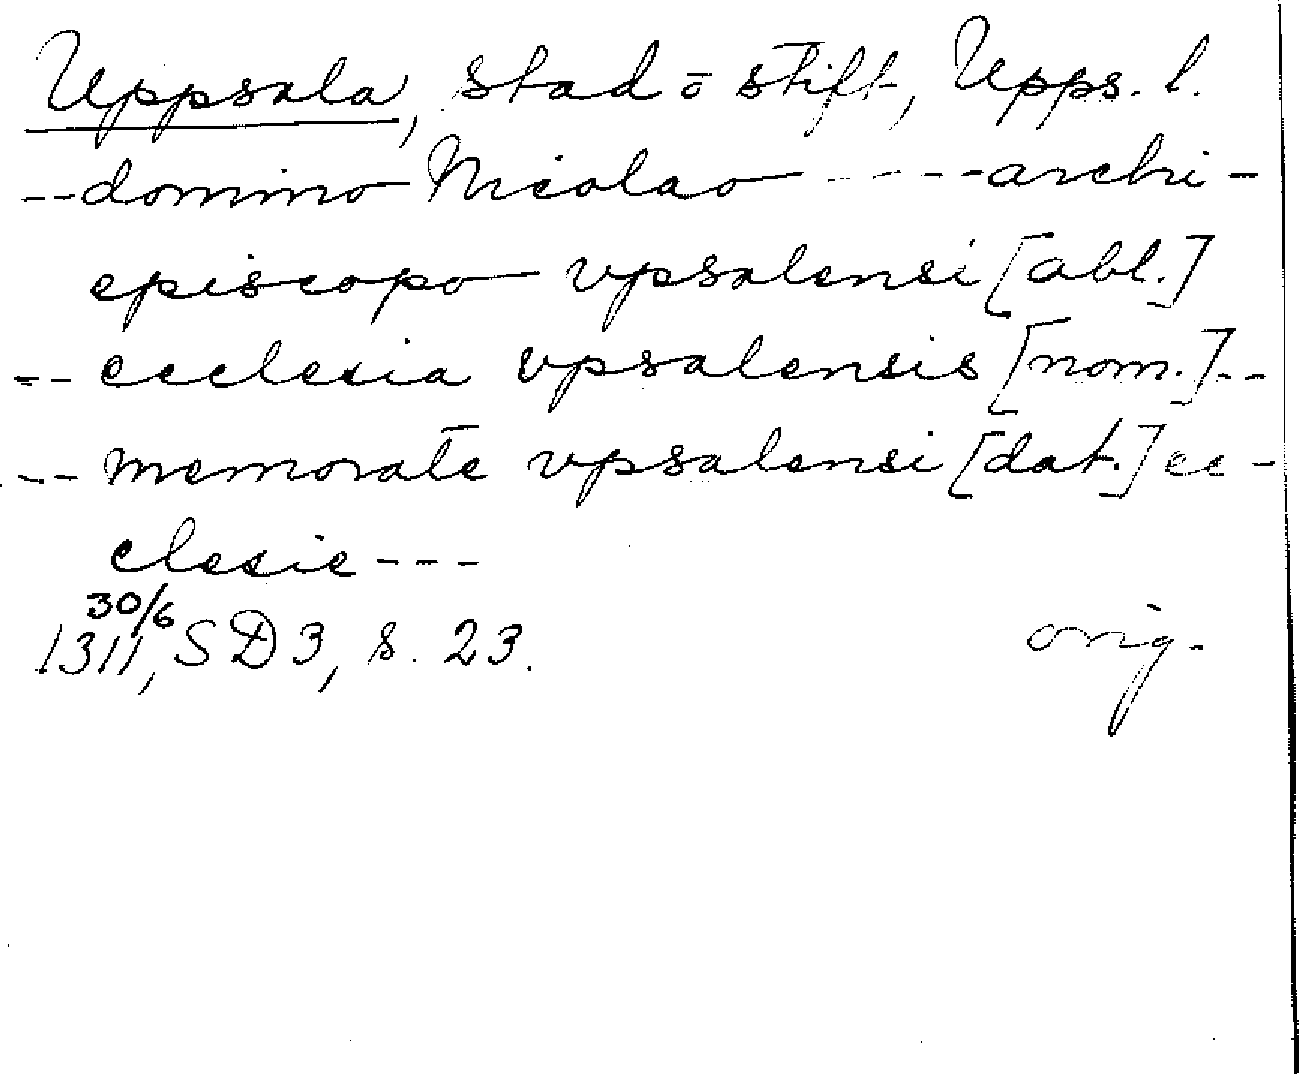 Uppsala, stad ō stift, Upps. l.
-- domino Nicolao ----- archi-
episcopo vpsalensi [abl.]
-- ecclesia vpsalensis [nom.] --
-- memorate vpsalensi [dat.] ec-
clesie ---
30/6
1311, SD 3, s. 23. orig.